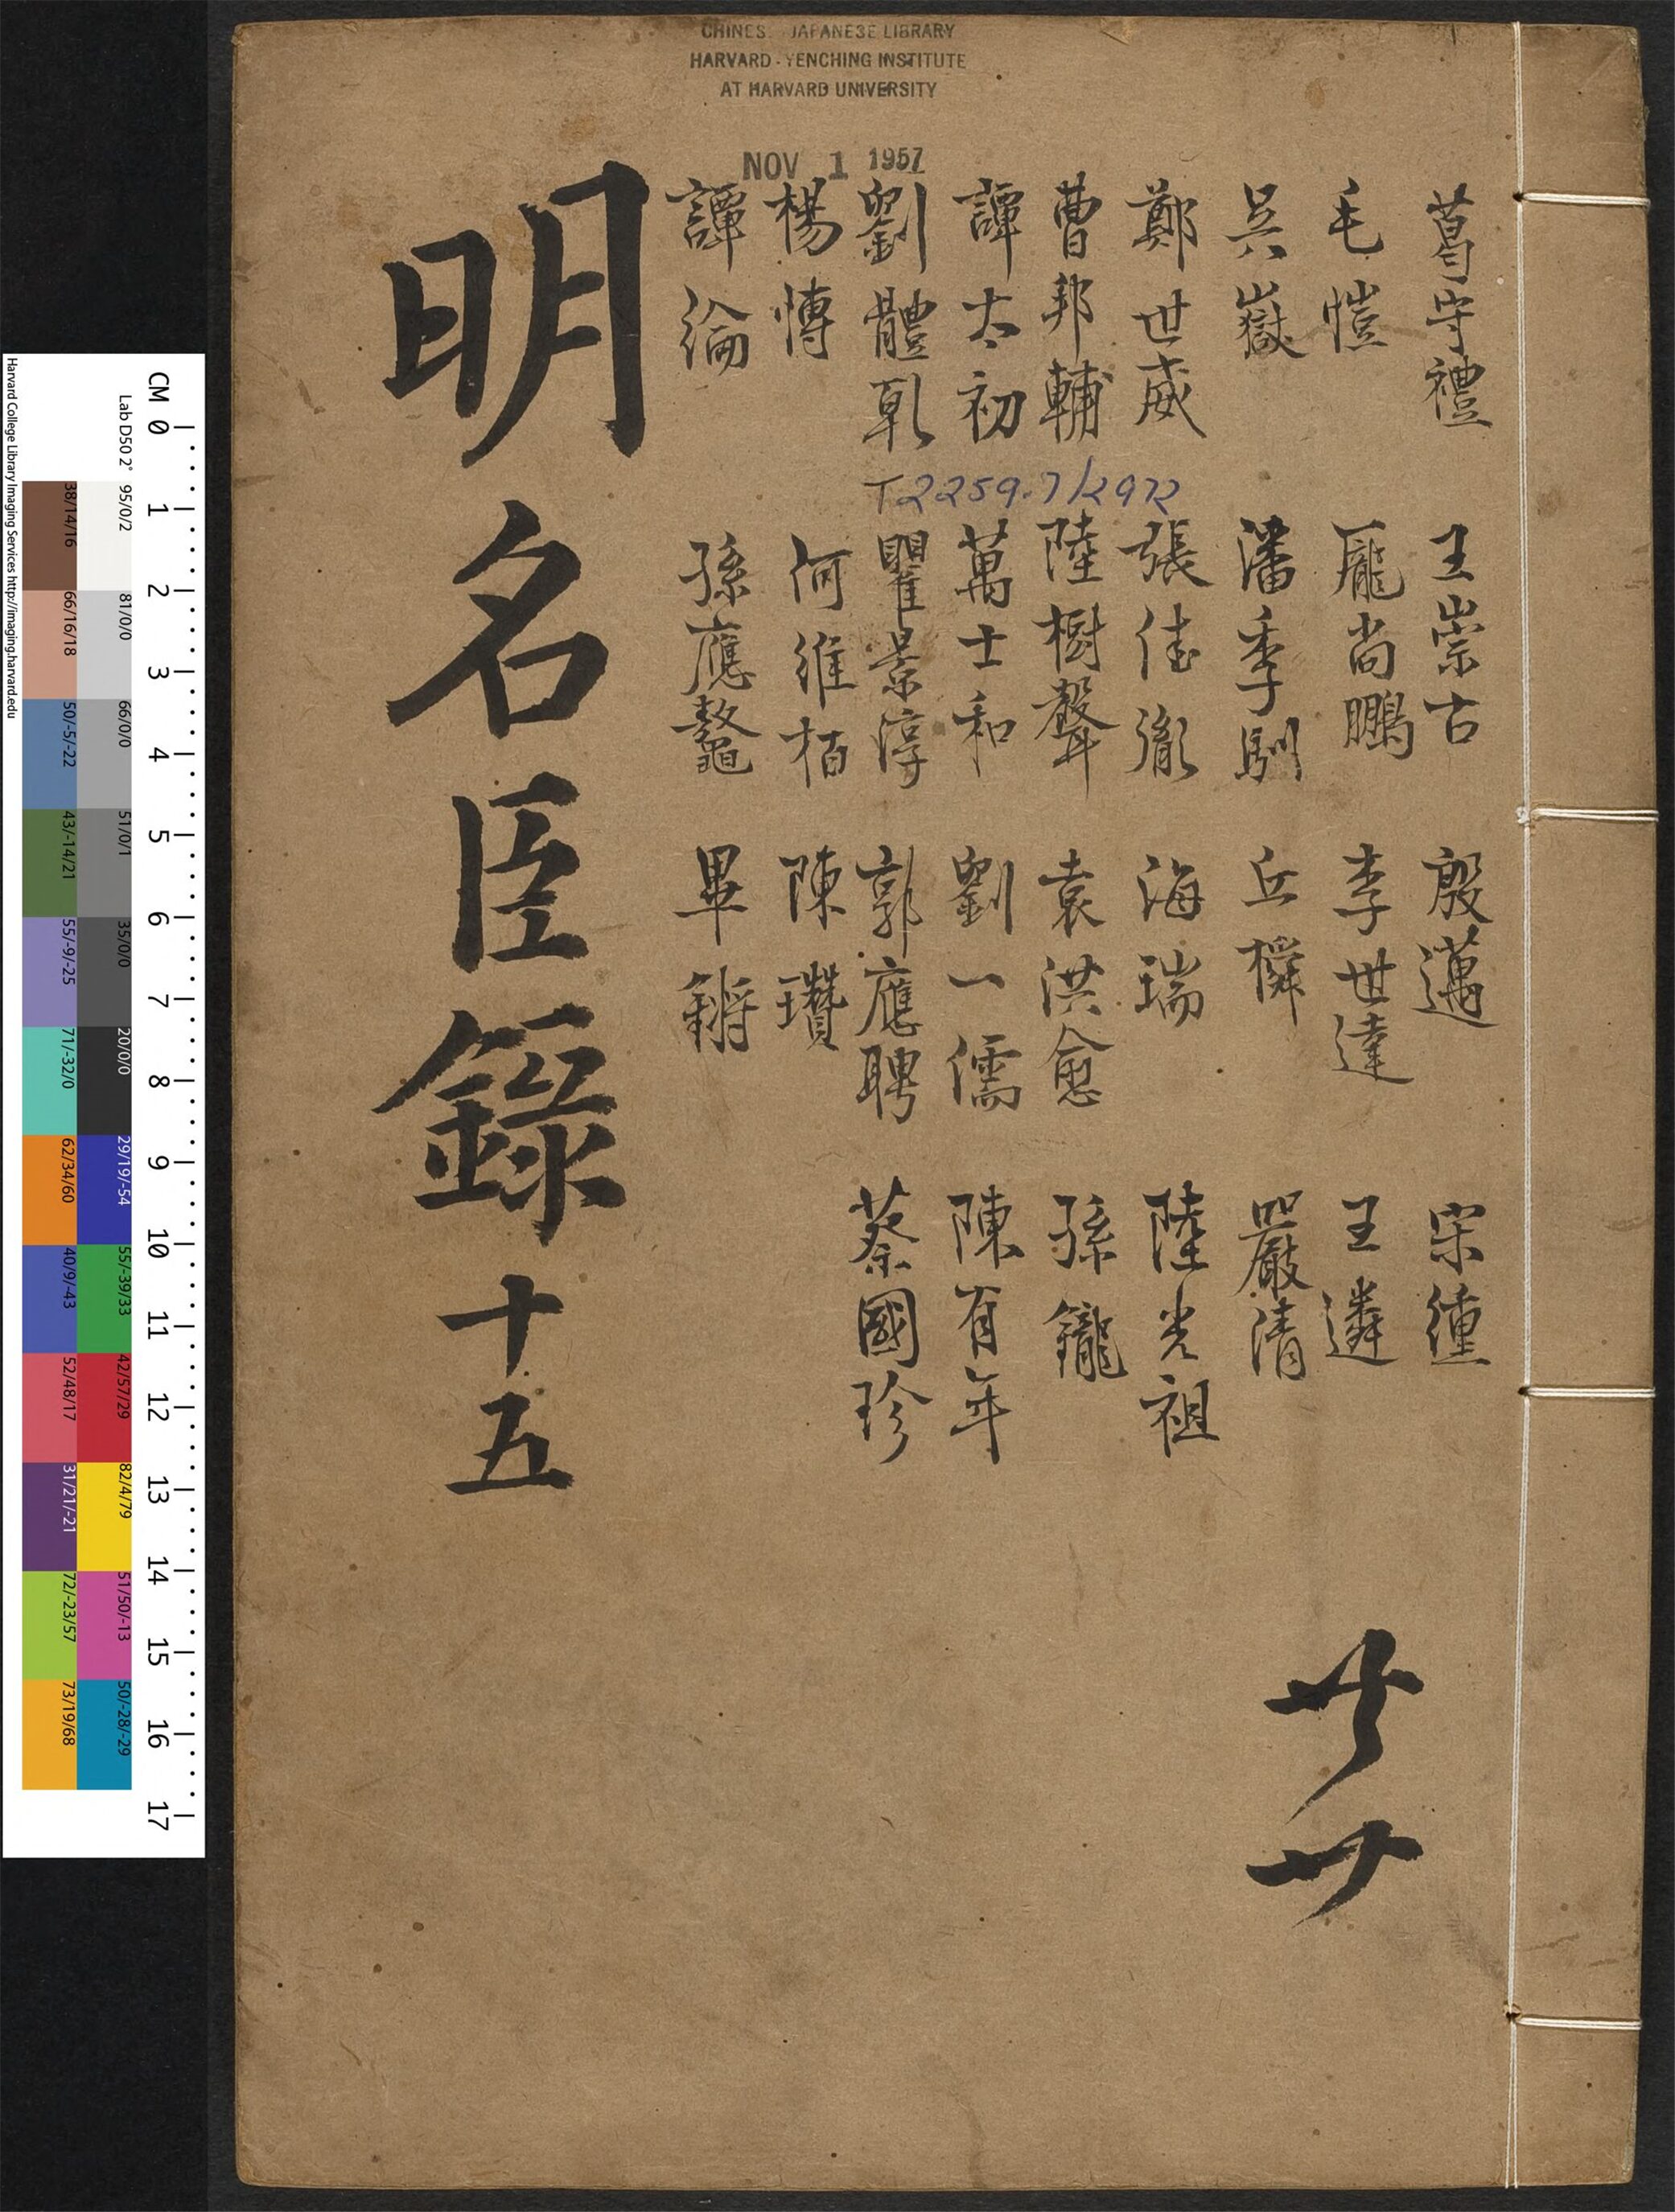 CHINESE-JAPANESE LIBRARY
HARVARD-YENCHING INSTITUTE
AT HARVARD UNIVERSITY
NOV 1 1957
葛守禮
毛愷
吳嶽
鄭世威
曹邦輔
譚太初
劉體乾
楊愽
譚綸
T2259.7/2972
王崇古
龐尚鵬
潘季馴
張佳胤
陸樹聲
萬士和
瞿景淳
何維栢
孫應鰲
殷邁
李世達
丘橓
海瑞
袁洪愈
劉一儒
郭應聘
陳瓚
畢鏘
宋纁
王遴
嚴清
陸光祖
孫鑨
陳有年
蔡國珍
明名臣錄十五
CM 0 1 2 3 4 5 6 7 8 9 10 11 12 13 14 15 16 17
Lab D50 2° 95/0/2 81/0/0 66/0/0 51/0/1 35/0/0 20/0/0 29/19/-54 55/-39/33 42/57/29 82/4/79 51/50/-13 50/-28/-29
38/14/16 66/16/18 50/-5/-22 43/-14/21 55/-9/-25 71/-32/0 62/34/60 40/9/-43 52/48/17 31/21/-21 72/-23/57 73/19/68
Harvard College Library Imaging Services http://imaging.harvard.edu